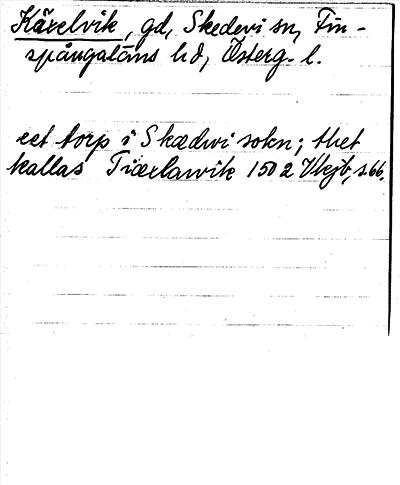 Kärelvik, gd, Skedevi sn, Fin-
spångaläns hd, Österg. l.
eet torp i Skædwi sokn; thet
kallas Tiærlawik 1502 Vkjb, s. 66.